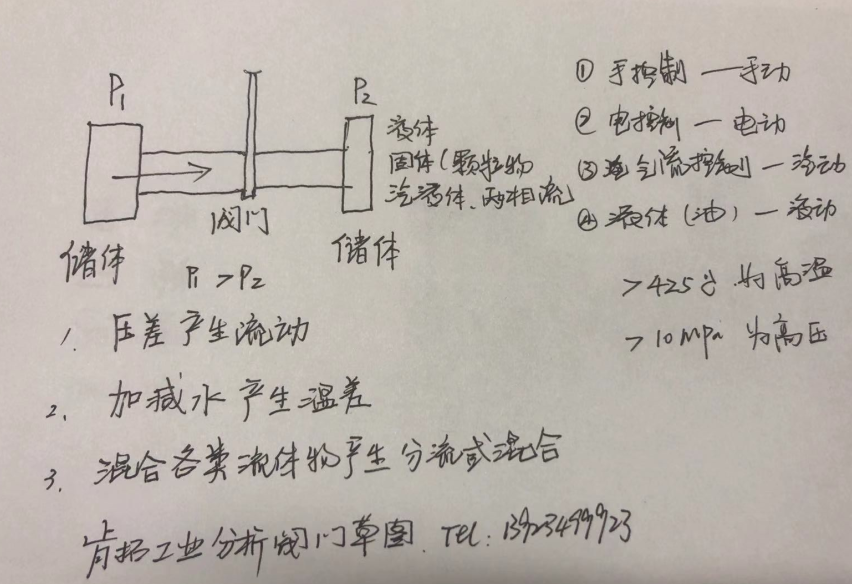 P₁
P₂
液体
固体(颗粒物
汽液体、两相流)
阀门
储体
储体
P₁ > P₂
① 手控制 — 手动
② 电控制 — 电动
③ 气流控制 — 汽动
④ 液体(油) — 液动
> 425℃ 为高温
> 10 MPa 为高压
1. 压差产生流动
2. 加减水产生温差
3. 混合各类流体物产生分流或混合
肯拓工业分析阀门草图. TEL: 13923499923